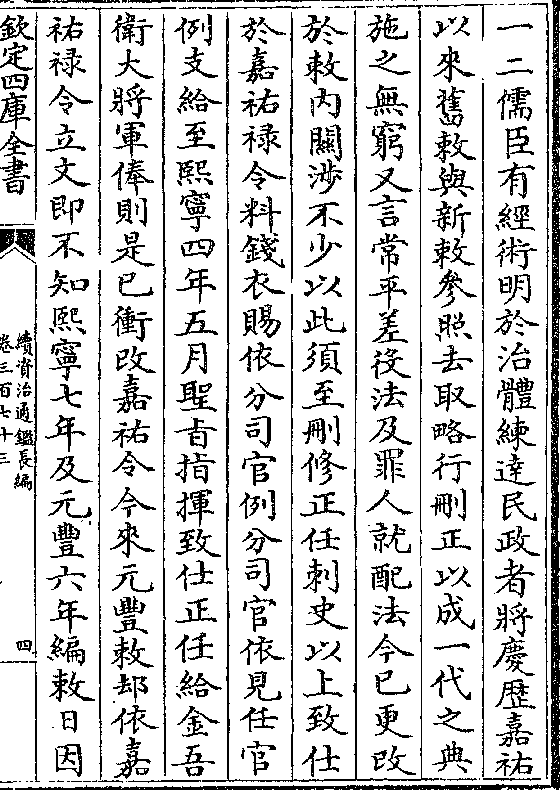 一二儒臣有經術明於治體練達民政者將慶歴嘉祐
以來舊敕與新敕參照去取略行刪正以成一代之典
施之無窮又言常平差役法及罪人就配法今已更改
於敕內關涉不少以此須至刪修正任刺史以上致仕
於嘉祐禄令料錢衣賜依分司官例分司官依見任官
例支給至熙寧四年五月聖旨指揮致仕正任給金吾
衛大將軍俸則是已衝改嘉祐令今來元豐敕却依嘉
祐禄令立文即不知熙寧七年及元豐六年編敕日因
欽定四庫全書
續資治通鑑長編
卷三百七十三
四